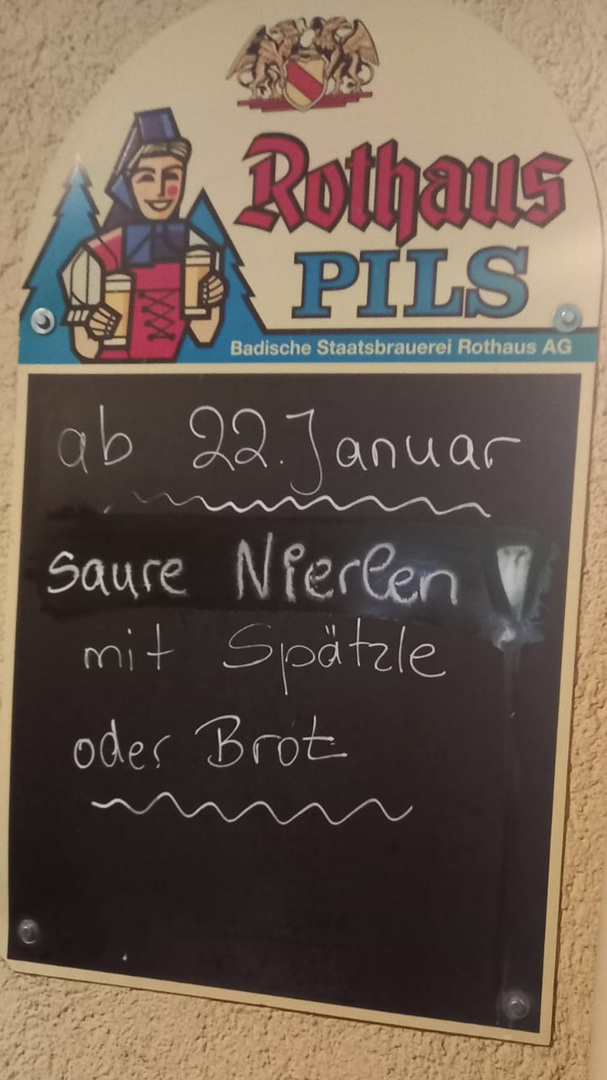 Rothaus
PILS
Badische Staatsbrauerei Rothaus AG
ab 22. Januar
saure Nierlen !
mit Spätzle
oder Brot